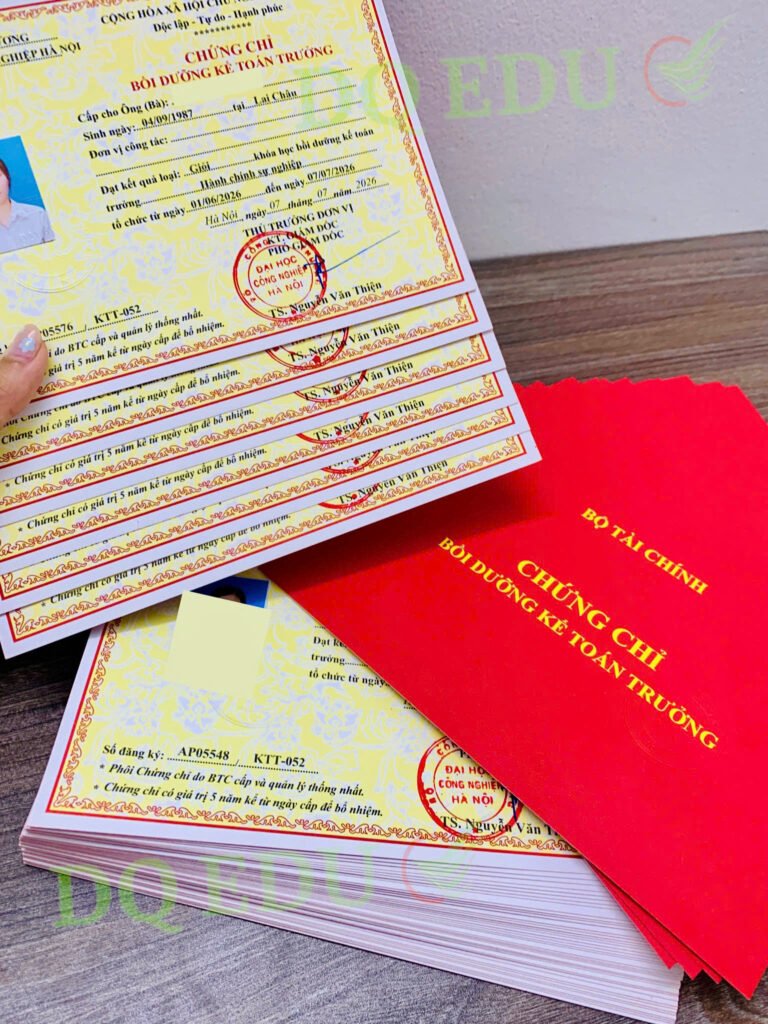 CỘNG HÒA XÃ HỘI CHỦ
Độc lập - Tự do - Hạnh phúc
***********
ƯƠNG
NGHIỆP HÀ NỘI
CHỨNG CHỈ
BỒI DƯỠNG KẾ TOÁN TRƯỞNG
DQ EDU
Cấp cho Ông (Bà):
Sinh ngày: 04/09/1987 tại Lai Châu
Đơn vị công tác:
Đạt kết quả loại: Giỏi khóa học bồi dưỡng kế toán
trưởng Hành chính sự nghiệp
tổ chức từ ngày 01/06/2026 đến ngày 07/07/2026
Hà Nội, ngày 07 tháng 07 năm 2026
THỦ TRƯỞNG ĐƠN VỊ
KT. GIÁM ĐỐC
PHÓ GIÁM ĐỐC
ĐẠI HỌC
CÔNG NGHIỆP
HÀ NỘI
TS. Nguyễn Văn Thiện
05576 / KTT-052
do BTC cấp và quản lý thống nhất.
giá trị 5 năm kể từ ngày cấp để bổ nhiệm.
TS. Nguyễn Văn Thiện
Chứng chỉ có giá trị 5 năm kể từ ngày cấp để bổ nhiệm.
TS. Nguyễn Văn Thiện
* Chứng chỉ có giá trị 5 năm kể từ ngày cấp để bổ nhiệm.
TS. Nguyễn Văn Thiện
* Chứng chỉ có giá trị 5 năm kể từ ngày cấp để bổ nhiệm.
TS. Nguyễn Văn Thiện
* Chứng chỉ có giá trị 5 năm kể từ ngày cấp để bổ nhiệm.
BỘ TÀI CHÍNH
CHỨNG CHỈ
BỒI DƯỠNG KẾ TOÁN TRƯỞNG
Đạt kết
trưởng
tổ chức từ ngày
Số đăng ký: AP05548 / KTT-052
* Phôi Chứng chỉ do BTC cấp và quản lý thống nhất.
* Chứng chỉ có giá trị 5 năm kể từ ngày cấp để bổ nhiệm.
ĐẠI HỌC
CÔNG NGHIỆP
HÀ NỘI
TS. Nguyễn Văn Th
DQ EDU